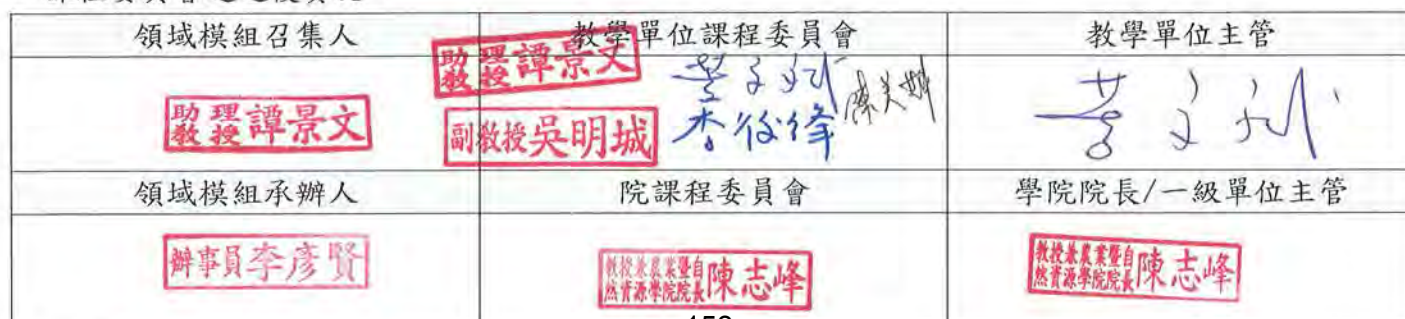 領域模組召集人 教學單位課程委員會 教學單位主管
助理教授 譚景文
助理教授 譚景文
副教授 吳明城
領域模組承辦人 院課程委員會 學院院長/一級單位主管
辦事員 李彥賢
教授兼農業暨自然資源學院院長 陳志峰
教授兼農業暨自然資源學院院長 陳志峰